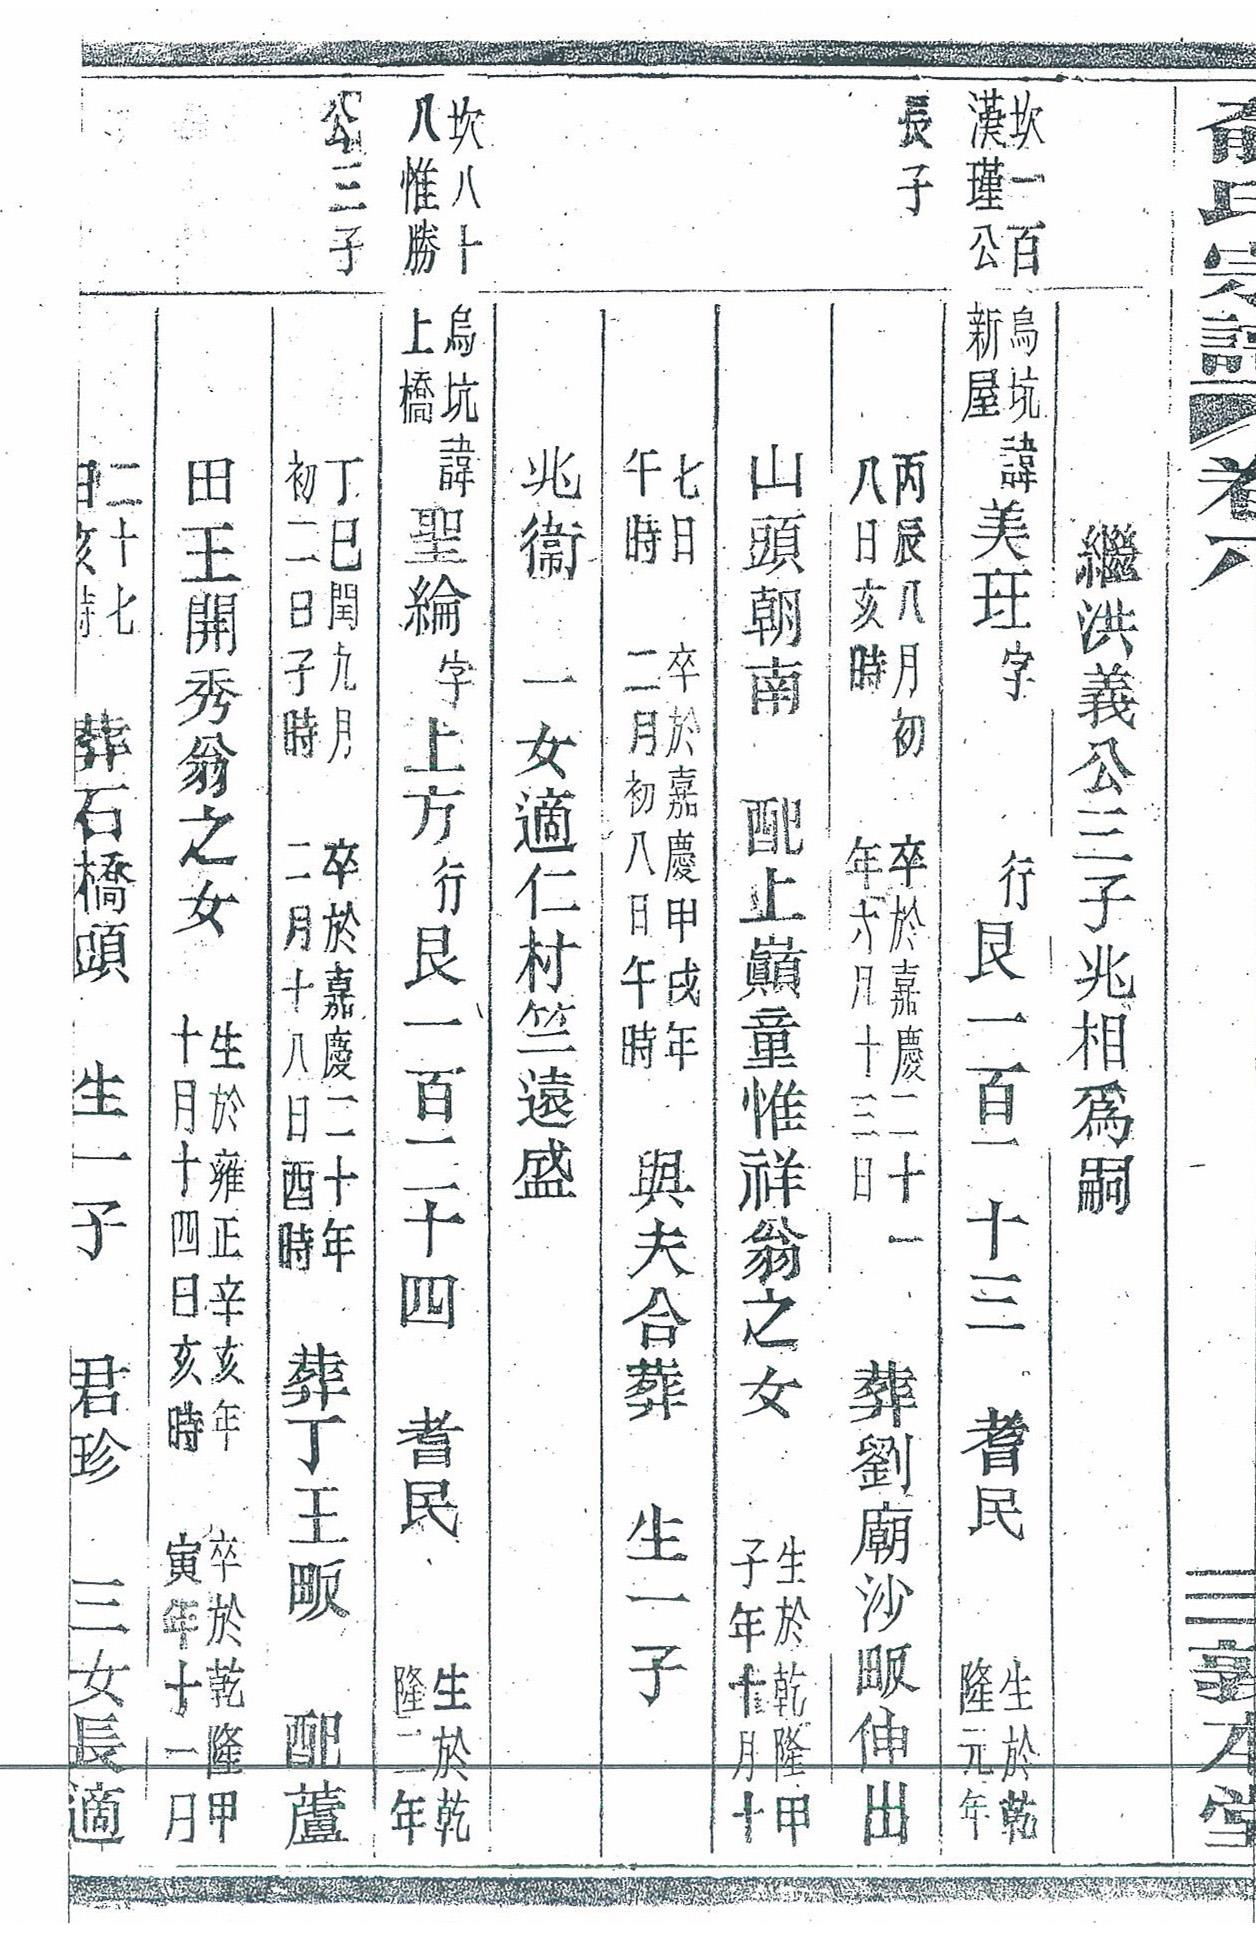 氏宗譜 卷八 三義本堂
繼洪義公三子兆相爲嗣
坎一百
漢瑾公 烏坑
新屋 諱美玨字 行艮一百一十三 耆民 生於乾
隆元年
長子 丙辰八月初
八日亥時 卒於嘉慶二十一
年六月十三日 葬劉廟沙畈伸出
山頭朝南 配上巔童惟祥翁之女 生於乾隆甲
子年十月十
七日
午時 卒於嘉慶甲戌年
二月初八日午時 與夫合葬 生一子
兆衞 一女適仁村竺遠盛
坎八十
八惟勝 烏坑
上橋 諱聖綸字上方行艮一百二十四 耆民 生於乾
隆二年
公三子 丁巳閏九月
初二日子時 卒於嘉慶二十年
二月十八日酉時 葬丁王畈 配蘆
田王開秀翁之女 生於雍正辛亥年
十月十四日亥時 卒於乾隆甲
寅年十一月
二十七
日亥時 葬石橋頭 生一子 君珍 三女長適